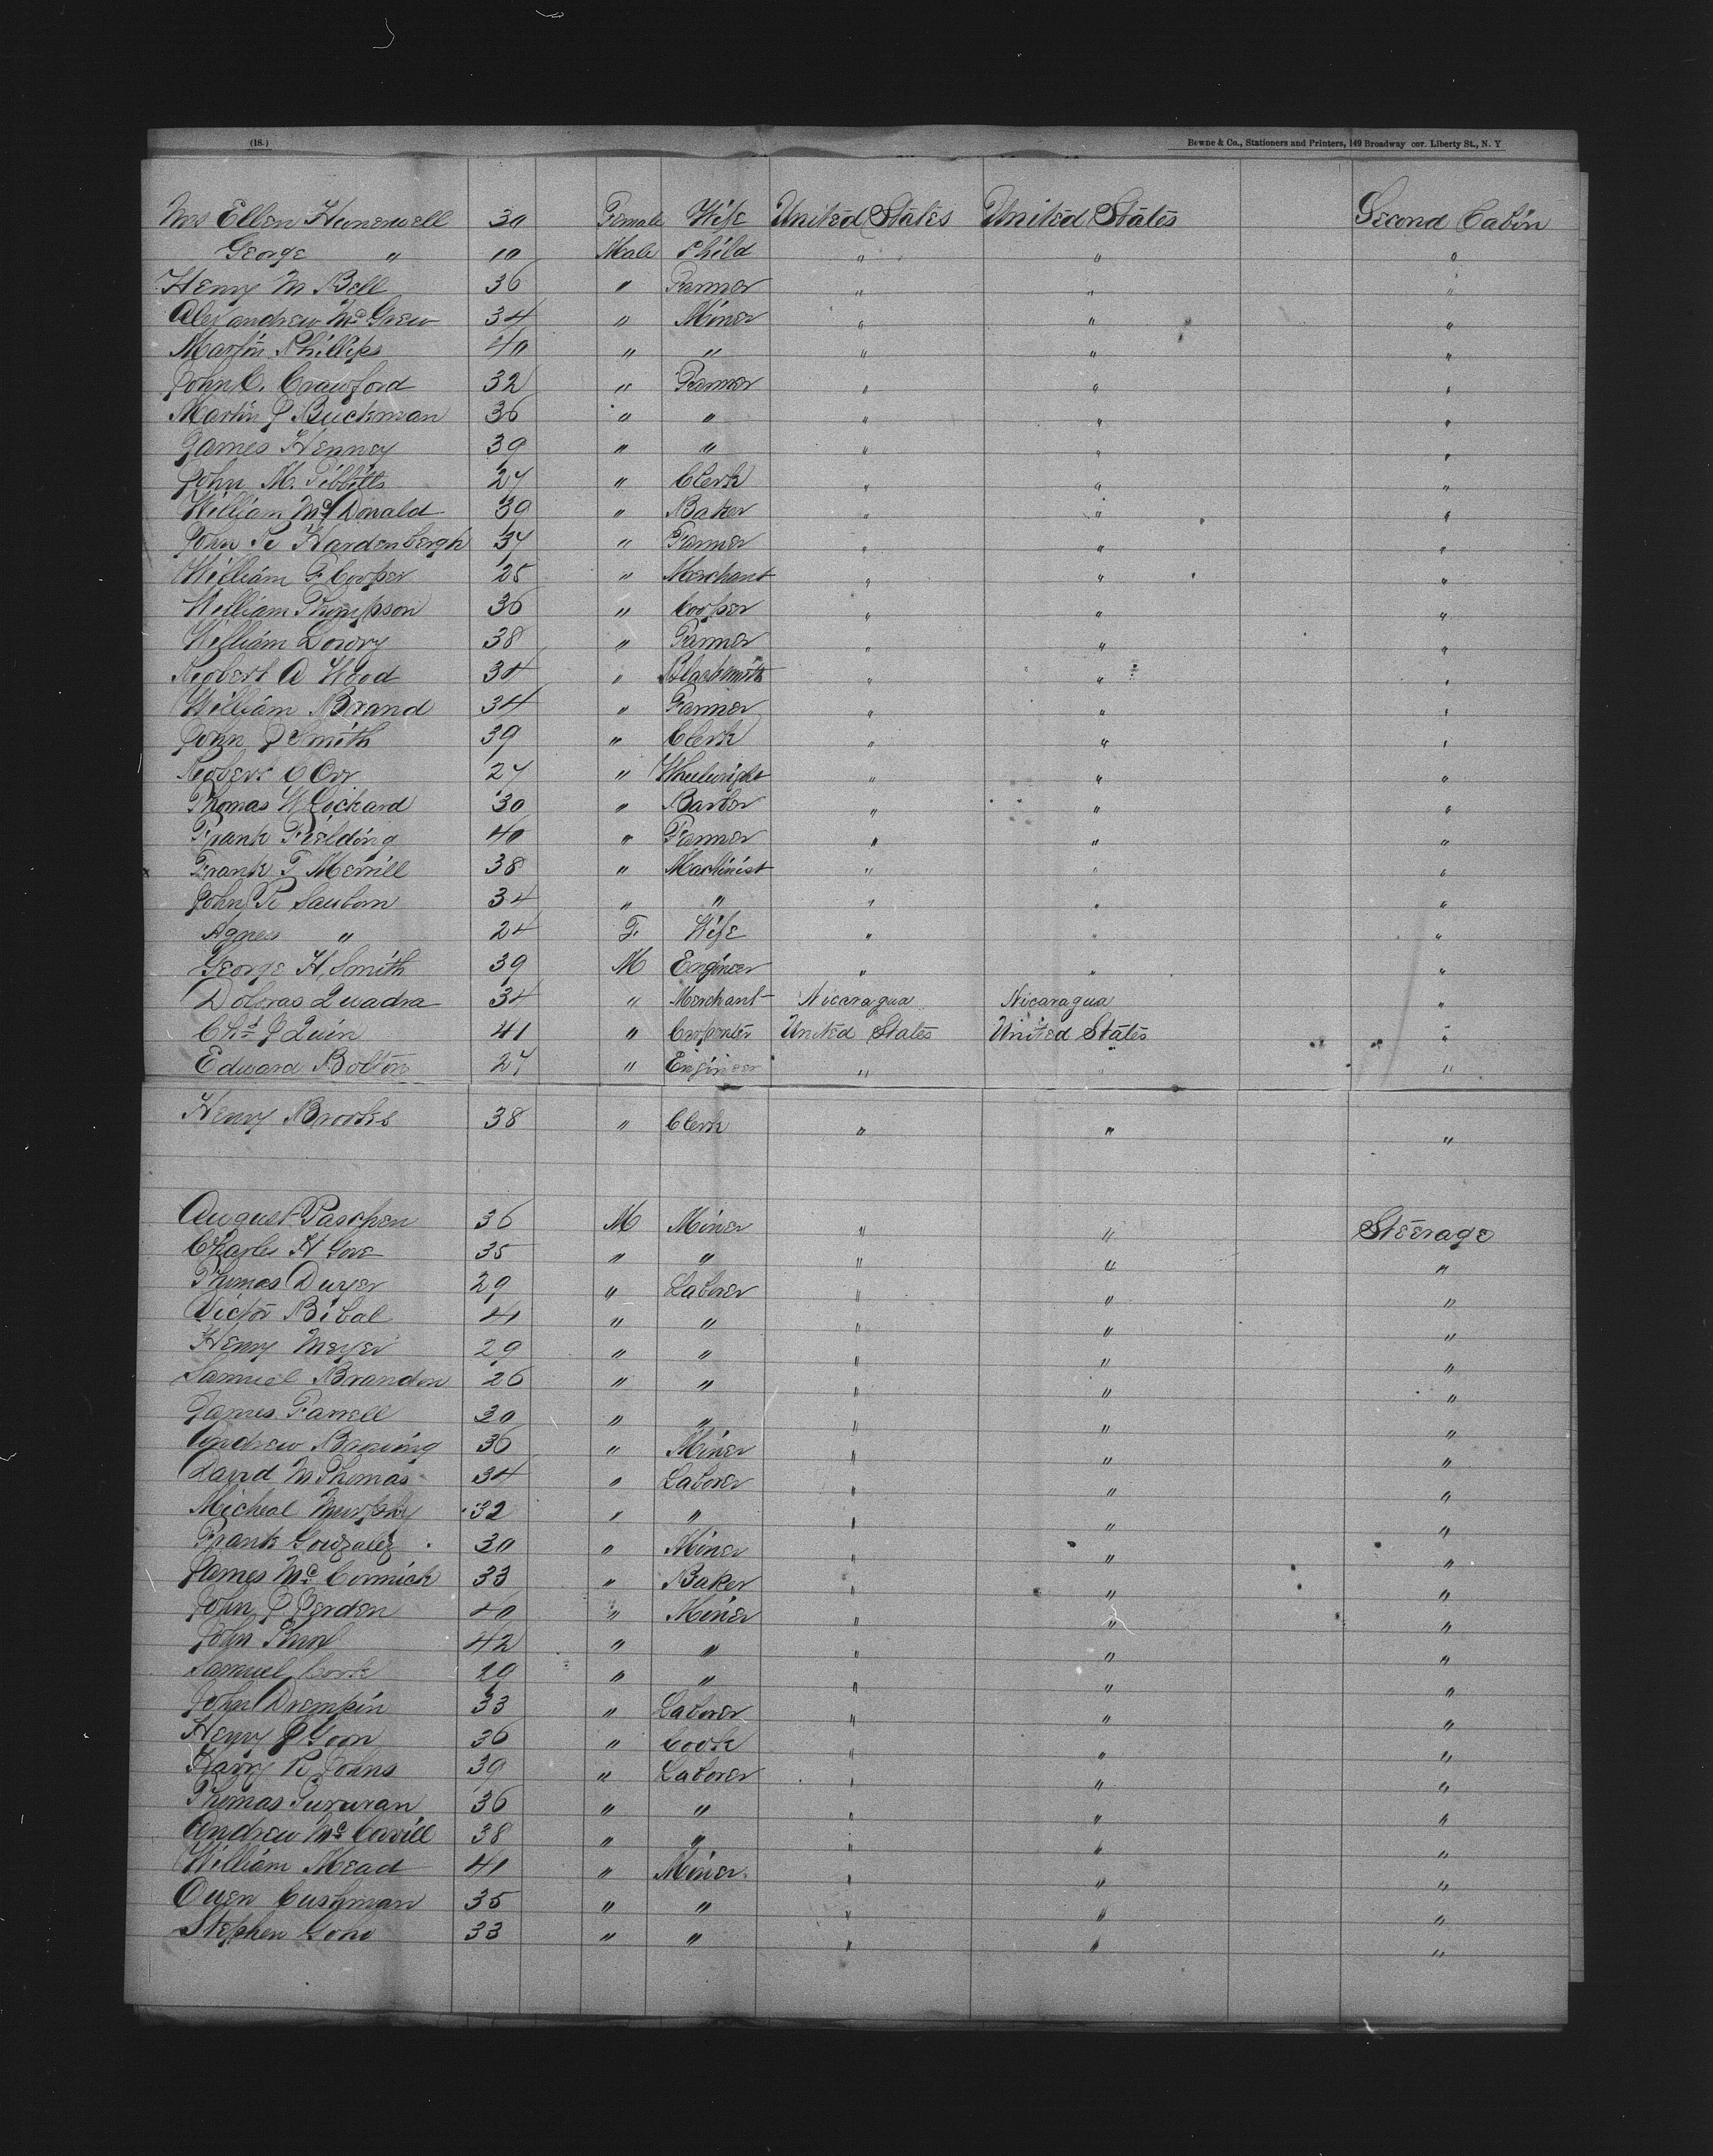 (18.) Bowne & Co., Stationers and Printers, 149 Broadway cor. Liberty St., N. Y
Mrs Ellen Hunewell 30 Female Wife United States United States Second Cabin
George " 10 Male Child " " "
Henry M Bell 36 " Farmer " " "
Alexandrew Mc Grew 34 " Miner " " "
Martin Phillips 40 " " " " "
John C. Crawford 32 " Farmer " " "
Martin J Buckman 36 " " " " "
James Henney 39 " " " " "
John M. Tibbitts 27 " Clerk " " "
William Mc Donald 39 " Baker " " "
John R Hardenbergh 37 " Farmer " " "
William F Cooper 25 " Merchant " " "
William Thompson 36 " Cooper " " "
William Lowry 38 " Farmer " " "
Robert A Wood 34 " Blacksmith " " "
William Brand 34 " Farmer " " "
John J Smith 39 " Clerk " " "
Robert O Orr 27 " Wheelwright " " "
Thomas W Lickard 30 " Barber " " "
Frank Fielding 40 " Farmer " " "
Frank T Merrill 38 " Machinist " " "
John R Sanborn 34 " " " " "
Agnes " 24 F. Wife " " "
George H. Smith 39 M Engineer " " "
Doloras Quadra 34 " Merchant Nicaragua Nicaragua "
Chs J Quin 41 " Carpenter United States United States "
Edward Bolton 27 " Engineer " " "
Henry Brooks 38 " Clerk " " "
August Paschen 36 M Miner " " Steerage
Charles H Gove 35 " " " " "
Thomas Dwyer 29 " Laborer " " "
Victor Bibal 41 " " " " "
Henry Meyer 29 " " " " "
Samuel Brandon 26 " " " " "
James Farrell 30 " " " " "
Andrew Banning 36 " Miner " " "
David M Thomas 34 " Laborer " " "
Micheal Murphy 32 " " " " "
Frank Gonzalez 30 " Miner " " "
James Mc Cormick 33 " Baker " " "
John J Jerden 40 " Miner " " "
John 42 " " " " "
Samuel Cook 29 " " " " "
John Drempin 33 " Laborer " " "
Henry J Goon 36 " Cook " " "
Harry R Johns 39 " Laborer " " "
Thomas 36 " " " " "
Andrew Mc Carvill 38 " " " " "
William Mead 41 " Miner " " "
Owen Cushman 35 " " " " "
Stephen Gono 33 " " " " "